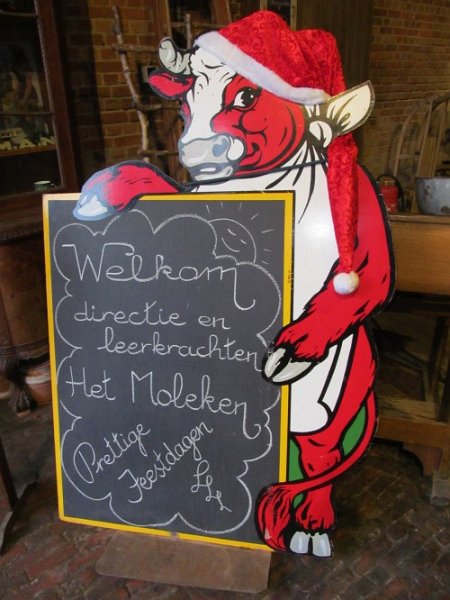 Welkom
directie en
leerkrachten
Het Moleken
Prettige
Feestdagen